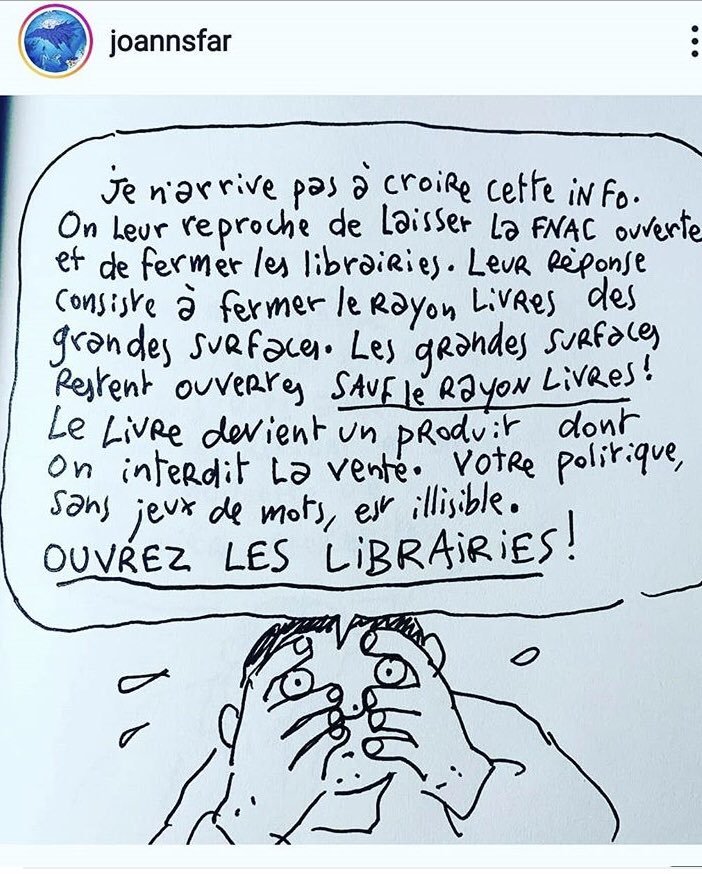 joannsfar
Je n'arrive pas à croire cette info.
On leur reproche de laisser la FNAC ouverte
et de fermer les librairies. Leur réponse
consiste à fermer le rayon livres des
grandes surfaces. Les grandes surfaces
restent ouvertes SAUF le RAYON LIVRES!
Le Livre devient un produit dont
on interdit la vente. Votre politique,
sans jeux de mots, est illisible.
OUVREZ LES LiBRAiRiES!